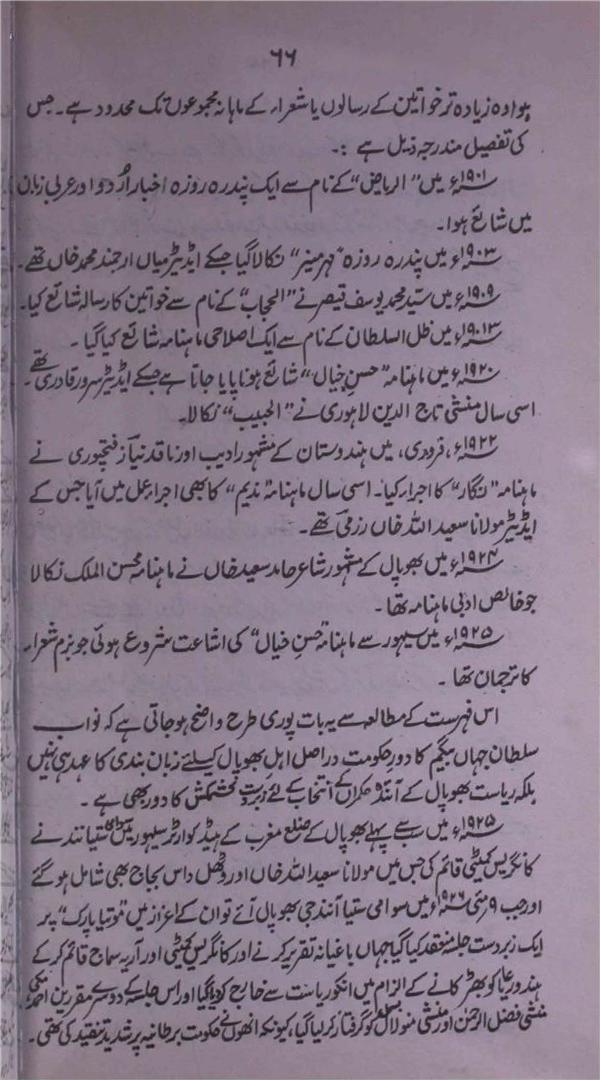 ۶۶
ہوا وہ زیادہ تر خواتین کے رسالوں یا شعراء کے ماہانہ مجموعوں تک محدود ہے۔ جس
کی تفصیل مندرجہ ذیل ہے :۔
۱۹۰۱ء میں "الریاض" کے نام سے ایک پندرہ روزہ اخبار اُردو اور عربی زبان
میں شائع ہوا۔
۱۹۰۳ء میں پندرہ روزہ "مہر منیر" نکالا گیا جسکے ایڈیٹر میاں ارجمند محمد خاں تھے۔
۱۹۰۹ء میں سید محمد یوسف قیصر نے "الحجاب" کے نام سے خواتین کا رسالہ شائع کیا۔
۱۹۰۱۳ء میں ظل السلطان کے نام سے ایک اصلاحی ماہنامہ شائع کیا گیا۔
۱۹۲۰ء میں ماہنامہ "حسن خیال" شائع ہونا پایا جاتا ہے جسکے ایڈیٹر سرور قادری تھے۔
اسی سال منشی تاج الدین لاہوری نے "الحبیب" نکالا۔
۱۹۲۲ء، فروری، میں ہندوستان کے مشہور ادیب اور ناقد نیاز فتحپوری نے
ماہنامہ "نگار" کا اجراء کیا۔ اسی سال ماہنامہ "ندیم" کا بھی اجراء عمل میں آیا جس کے
ایڈیٹر مولانا سعید اللہ خاں رزمی تھے۔
۱۹۲۴ء میں بھوپال کے مشہور شاعر حامد سعید خاں نے ماہنامہ محسن الملک نکالا
جو خالص ادبی ماہنامہ تھا۔
۱۹۲۵ء میں سیہور سے ماہنامہ "حسن خیال" کی اشاعت شروع ہوئی جو بزم شعراء
کا ترجمان تھا۔
اس فہرست کے مطالعہ سے یہ بات پوری طرح واضح ہو جاتی ہے کہ نواب
سلطان جہاں بیگم کا دور حکومت دراصل اہل بھوپال کیلئے زبان بندی کا عہد ہی نہیں
بلکہ ریاست بھوپال کے آئندہ حکمراں کے انتخاب کے لئے زبردست کشمکش کا دور بھی ہے۔
۱۹۲۵ء میں سب سے پہلے بھوپال کے ضلع مغرب کے ہیڈ کوارٹر سیہور میں ستیانند نے
کانگریس کمیٹی قائم کی جس میں مولانا سعید اللہ خاں اور وٹھل داس بجاج بھی شامل ہو گئے
اور جب ۹ مئی ۱۹۲۶ء میں سوامی ستیا آنند جی بھوپال آئے تو ان کے اعزاز میں "موتیا پارک" پر
ایک زبردست جلسہ منعقد کیا گیا جہاں باغیانہ تقریر کرنے اور کانگریس کمیٹی اور آریہ سماج قائم کر کے
ہندو رعایا کو بھڑکانے کے الزام میں انکو ریاست سے خارج کر دیا گیا اور اس جلسہ کے دوسرے مقررین احمد مکی
منشی فضل الرحمن اور منشی منو لال کو گرفتار کر لیا گیا، کیونکہ انھوں نے حکومت برطانیہ پر شدید تنقید کی تھی۔